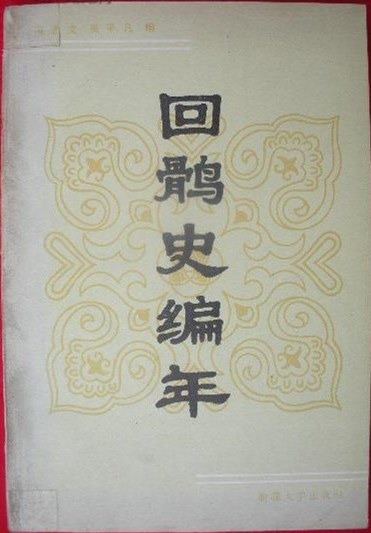 吴平凡 编
回鹘史编年
新疆大学出版社